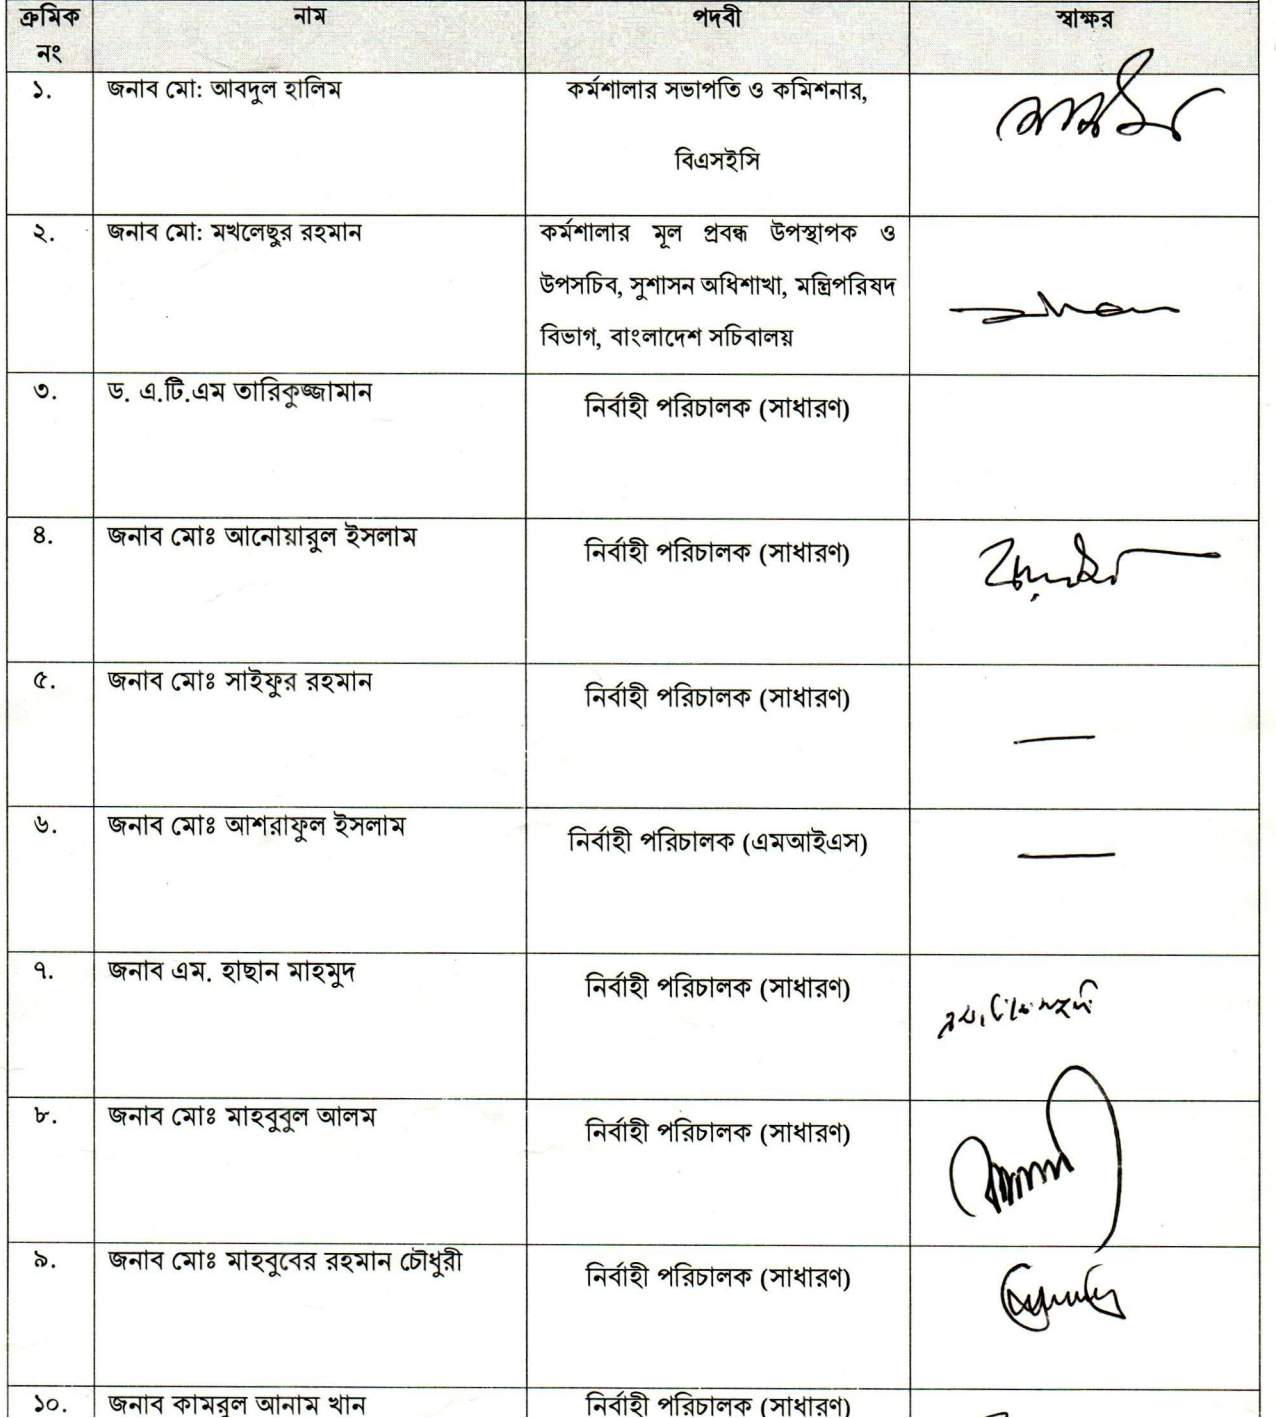 ক্রমিক নং নাম পদবী স্বাক্ষর
১. জনাব মো: আবদুল হালিম কর্মশালার সভাপতি ও কমিশনার,
বিএসইসি
২. জনাব মো: মখলেছুর রহমান কর্মশালার মূল প্রবন্ধ উপস্থাপক ও
উপসচিব, সুশাসন অধিশাখা, মন্ত্রিপরিষদ
বিভাগ, বাংলাদেশ সচিবালয়
৩. ড. এ.টি.এম তারিকুজ্জামান নির্বাহী পরিচালক (সাধারণ)
৪. জনাব মোঃ আনোয়ারুল ইসলাম নির্বাহী পরিচালক (সাধারণ)
৫. জনাব মোঃ সাইফুর রহমান নির্বাহী পরিচালক (সাধারণ)
৬. জনাব মোঃ আশরাফুল ইসলাম নির্বাহী পরিচালক (এমআইএস)
৭. জনাব এম. হাছান মাহমুদ নির্বাহী পরিচালক (সাধারণ)
৮. জনাব মোঃ মাহবুবুল আলম নির্বাহী পরিচালক (সাধারণ)
৯. জনাব মোঃ মাহবুবের রহমান চৌধুরী নির্বাহী পরিচালক (সাধারণ)
১০. জনাব কামরুল আনাম খান নির্বাহী পরিচালক (সাধারণ)